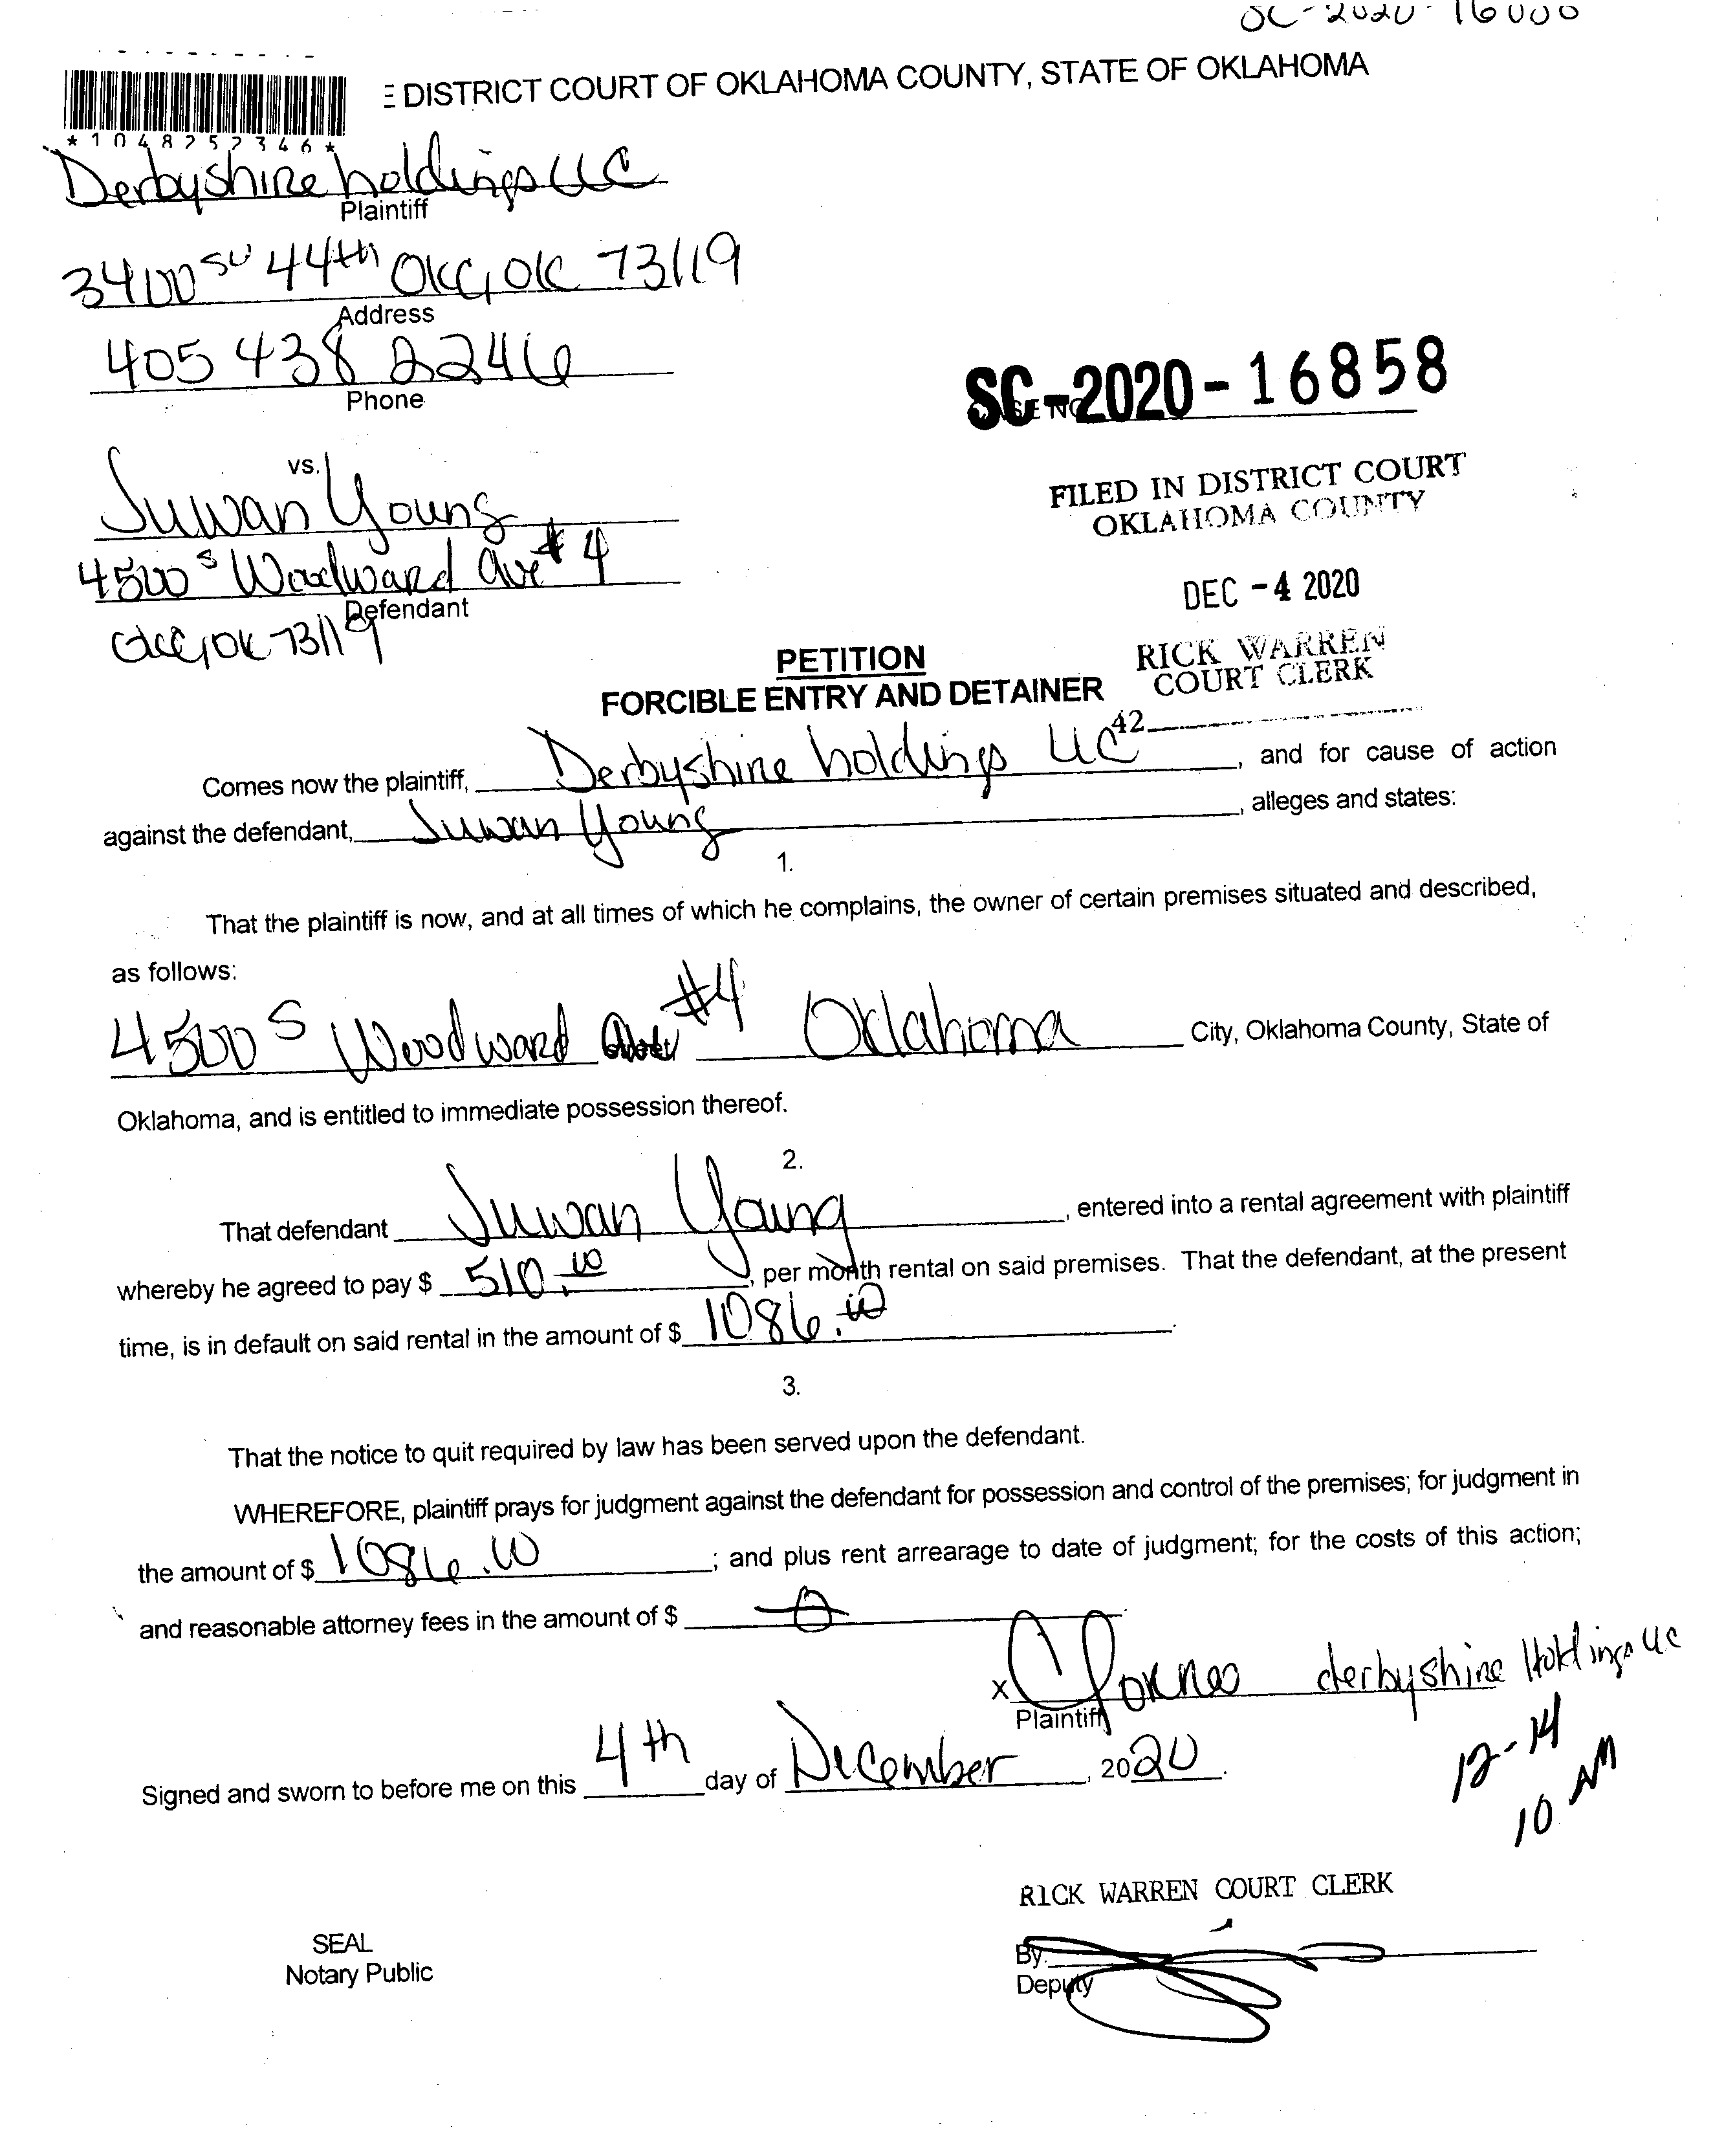 E DISTRICT COURT OF OKLAHOMA COUNTY, STATE OF OKLAHOMA
*1048252346*
Derbyshire holdings LLC
Plaintiff
3400 SW 44th OKC, OK 73119
Address
405 438 2246
Phone
SC-2020-16858
vs.
Juwan Young
4500 S Woodward Ave #4
Defendant
OKC, OK 73119
FILED IN DISTRICT COURT
OKLAHOMA COUNTY
DEC -4 2020
RICK WARREN
COURT CLERK
42
PETITION
FORCIBLE ENTRY AND DETAINER
Comes now the plaintiff, Derbyshire holdings LLC, and for cause of action
against the defendant, Juwan Young, alleges and states:
1.
That the plaintiff is now, and at all times of which he complains, the owner of certain premises situated and described,
as follows:
4500 S Woodward #4 Oklahoma City, Oklahoma County, State of
Oklahoma, and is entitled to immediate possession thereof.
2.
That defendant Juwan Young, entered into a rental agreement with plaintiff
whereby he agreed to pay $ 510.00, per month rental on said premises. That the defendant, at the present
time, is in default on said rental in the amount of $ 1086.00.
3.
That the notice to quit required by law has been served upon the defendant.
WHEREFORE, plaintiff prays for judgment against the defendant for possession and control of the premises; for judgment in
the amount of $ 1086.00; and plus rent arrearage to date of judgment; for the costs of this action;
and reasonable attorney fees in the amount of $ 0
x derbyshire Holdings LLC
Plaintiff
Signed and sworn to before me on this 4th day of December, 2020.
12-14
10 AM
RICK WARREN COURT CLERK
SEAL
Notary Public
By:
Deputy